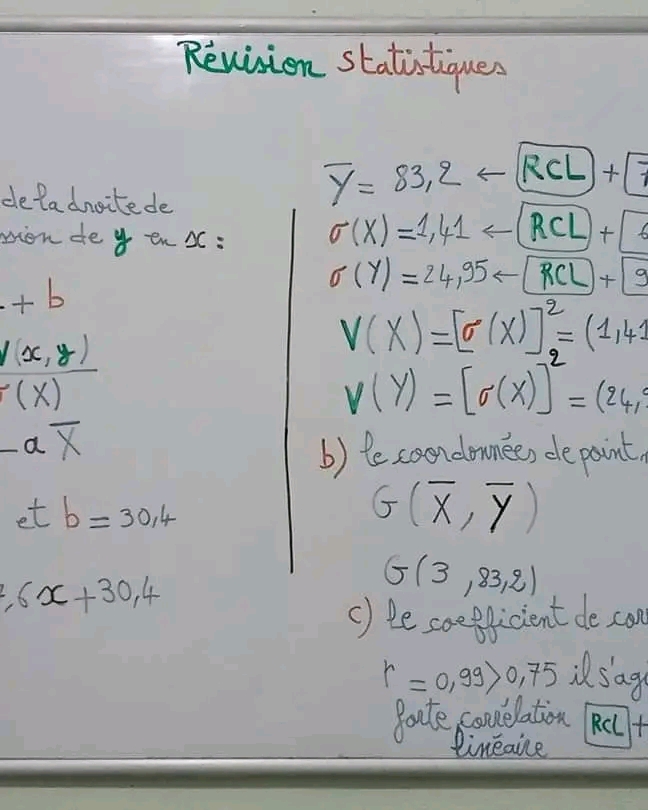 Révision statistiques
de la droite de
ssion de y en x :
+ b
V(x, y)
σ(X)
- a X̅
et b = 30,4
,6x + 30,4
Y̅ = 83,2 ← RCL + 7
σ(X) = 1,41 ← RCL + 6
σ(Y) = 24,95 ← RCL + 9
V(X) = [σ(X)]² = (1,41
V(Y) = [σ(X)]² = (24,9
b) le coordonnées de point
G(X̅, Y̅)
G(3 , 83,2)
c) le coefficient de cor
r = 0,99 > 0,75 il s'agi
forte corrélation RCL +
linéaire